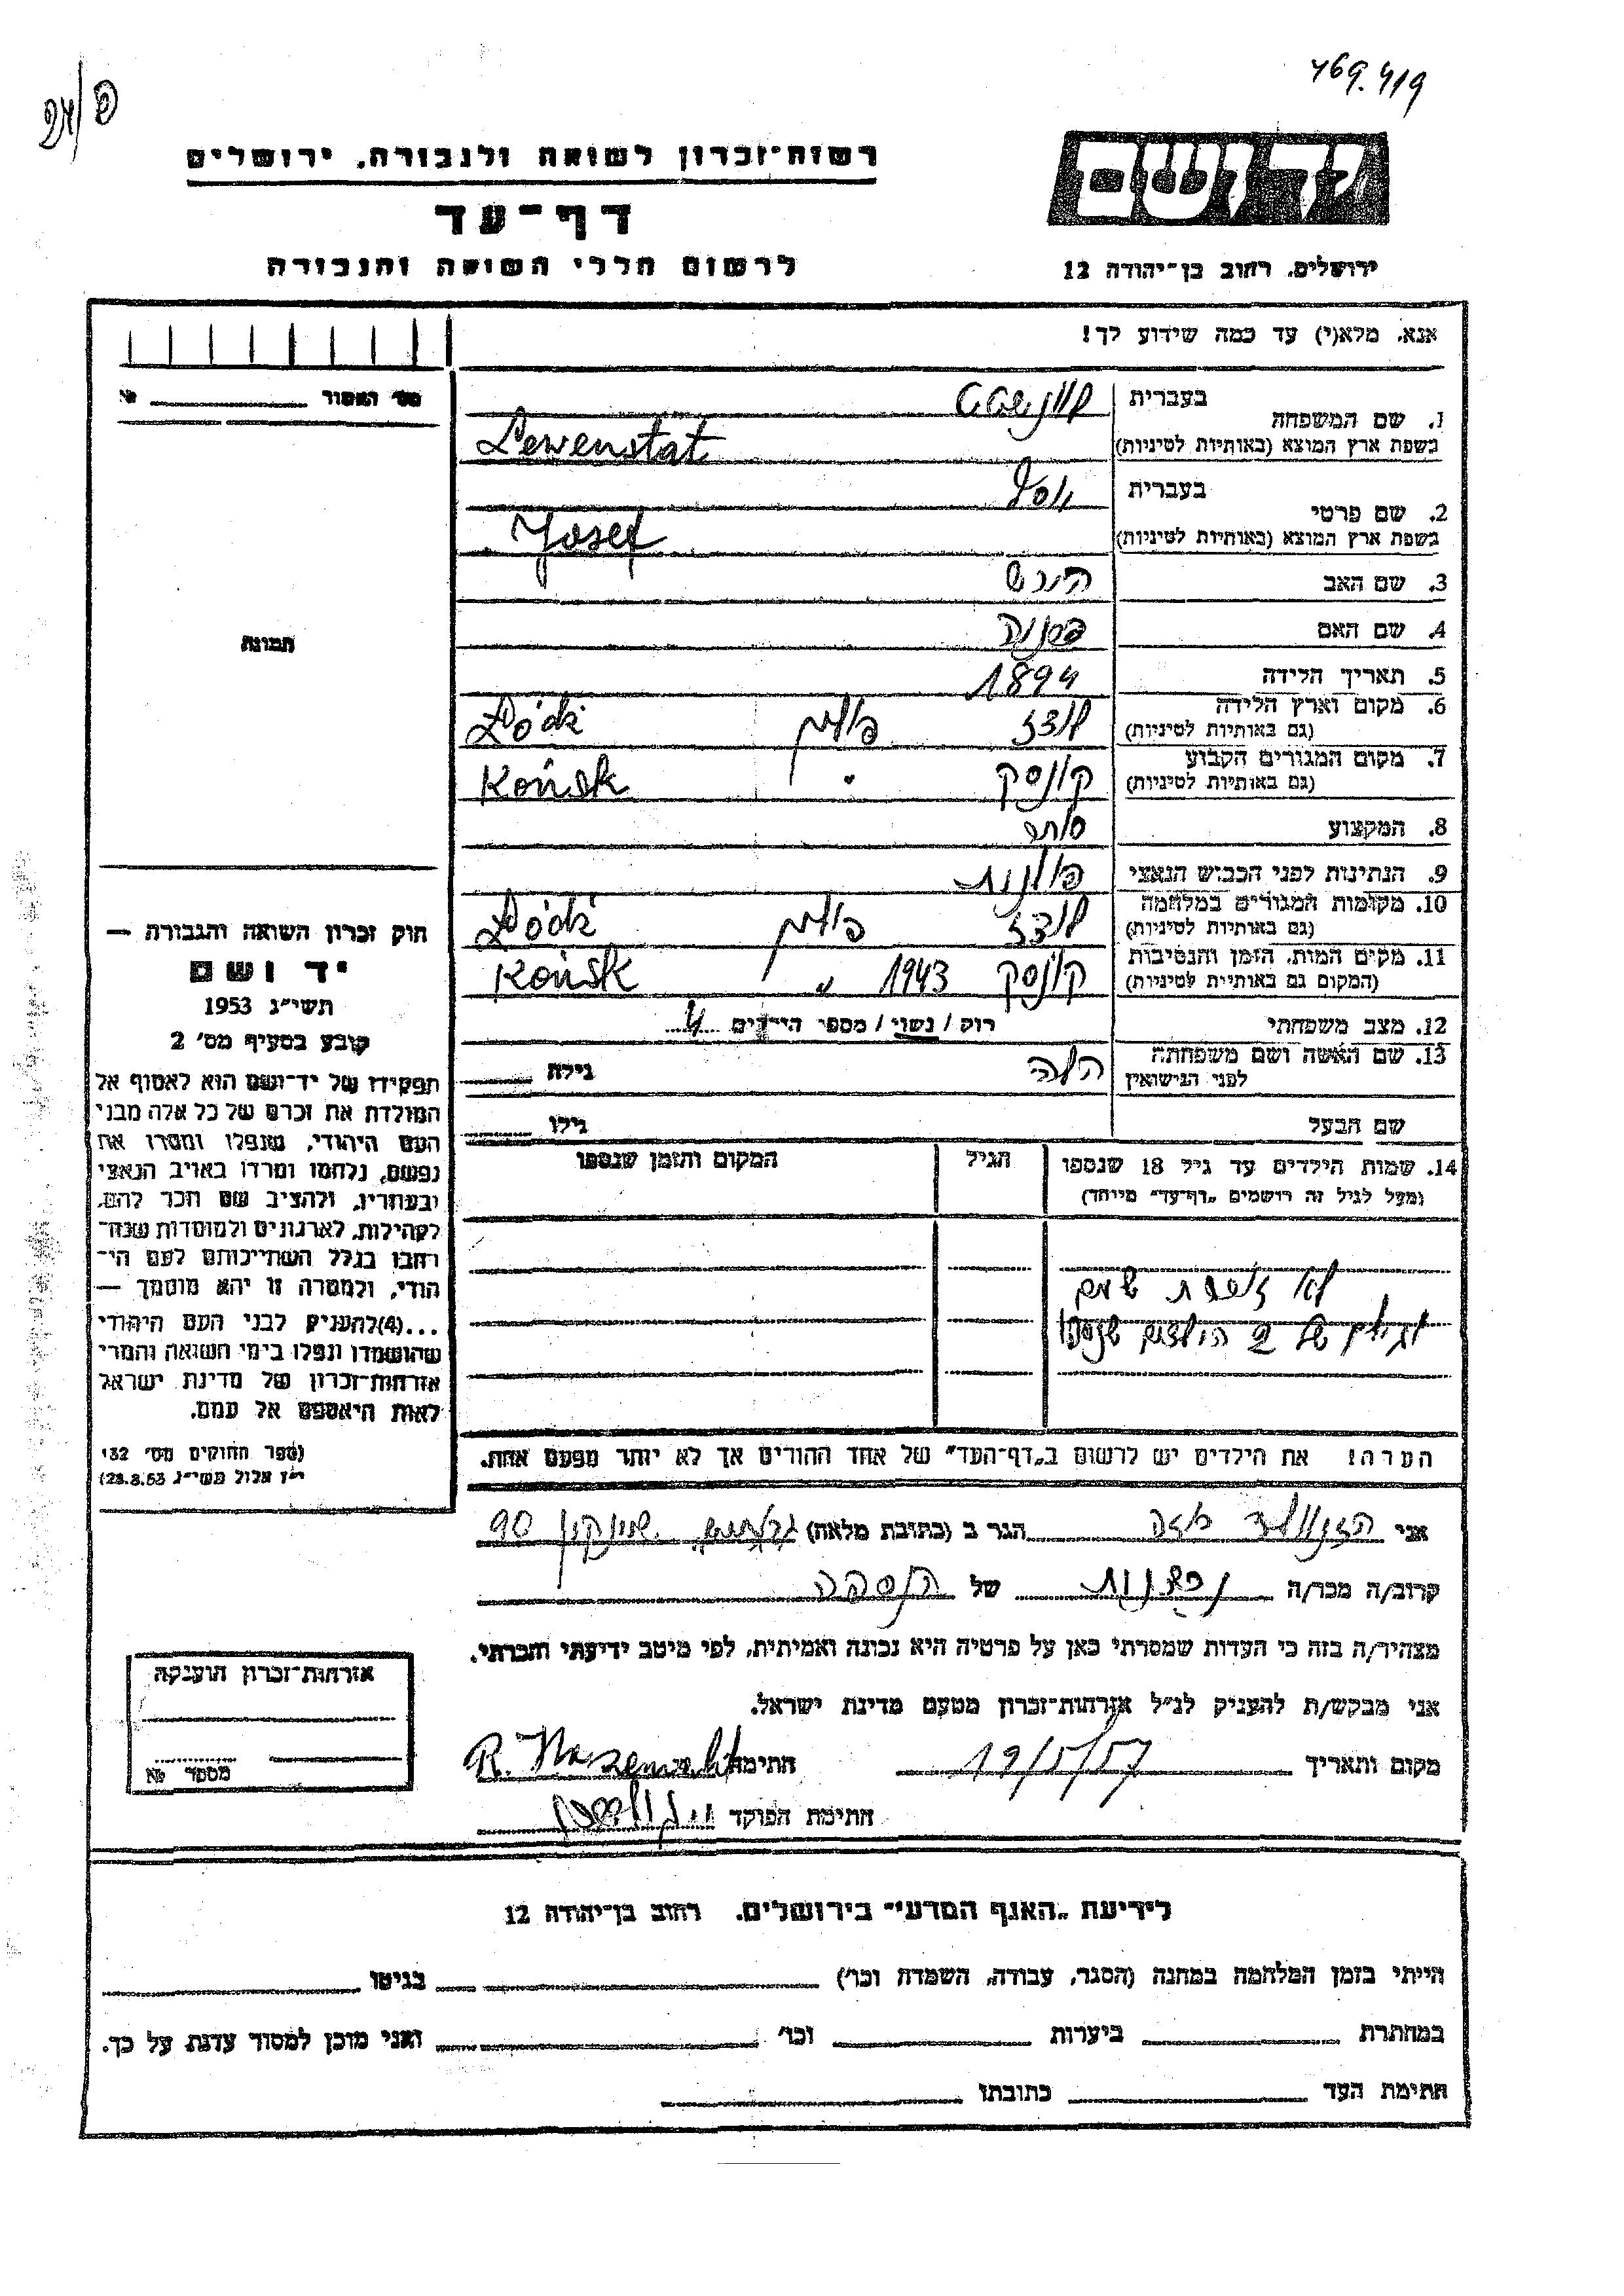 469.419
רשות-זכרון לשואה ולגבורה, ירושלים
דף-עד
לרשום חללי השואה והגבורה
יד ושם
ירושלים, רחוב בן-יהודה 12
אנא, מלא(י) עד כמה שידוע לך!
מס' האסור №
בעברית
1. שם המשפחה
בשפת ארץ המוצא (באותיות לטיניות) Lewenstat
בעברית יוסף
2. שם פרטי
בשפת ארץ המוצא (באותיות לטיניות) Josef
3. שם האב הירש
4. שם האם
5. תאריך הלידה 1894
6. מקום וארץ הלידה לודז פולין Łódź
(גם באותיות לטיניות)
7. מקום המגורים הקבוע קונסק " Końsk
(גם באותיות לטיניות)
8. המקצוע סוחר
9. הנתינות לפני הכבוש הנאצי פולנית
10. מקומות המגורים במלחמה לודז פולין Łódź
(גם באותיות לטיניות)
11. מקום המות, הזמן והנסיבות קונסק 1943 " Końsk
(המקום גם באותיות לטיניות)
12. מצב משפחתי רוק / נשוי / מספר הילדים 4
13. שם האשה ושם משפחתה לפני הנישואין גילה
שם הבעל גילו
14. שמות הילדים עד גיל 18 שנספו
(מעל לגיל זה רושמים „דף-עד" מיוחד)
הגיל
המקום והזמן שנספו
לא זוכרת שמם
וגילם של הילדים שנספו
תמונה
חוק זכרון השואה והגבורה —
יד ושם
תשי"ג 1953
קובע בסעיף מס' 2
תפקידו של יד-ושם הוא לאסוף אל
המולדת את זכרם של כל אלה מבני
העם היהודי, שנפלו ומסרו את
נפשם, נלחמו ומרדו באויב הנאצי
ובעוזריו, ולהציב שם וזכר להם,
לקהילות, לארגונים ולמוסדות שנח-
רבו בגלל השתייכותם לעם הי-
הודי, ולמטרה זו יהא מוסמך —
...(4)להעניק לבני העם היהודי
שהושמדו ונפלו בימי השואה והמרי
אזרחות-זכרון של מדינת ישראל
לאות היאספם אל עמם.
(ספר החוקים מס' 132
י"ז אלול תשי"ג 28.8.53)
הערה! את הילדים יש לרשום ב„דף-העד" של אחד ההורים אך לא יותר מפעם אחת.
אני הגר ב (כתובת מלאה) גבעתיים שינקין 90
קרוב/ה מכר/ה של
מצהיר/ה בזה כי העדות שמסרתי כאן על פרטיה היא נכונה ואמיתית, לפי מיטב ידיעתי והכרתי.
אני מבקש/ת להעניק לנ"ל אזרחות-זכרון מטעם מדינת ישראל.
מקום ותאריך 19/5/57 חתימה
חתימת הפוקד
אזרחות-זכרון הוענקה
מספר №
לידיעת „האגף המדעי" בירושלים, רחוב בן-יהודה 12
הייתי בזמן המלחמה במחנה (הסגר, עבודה, השמדה וכו') בגיטו
במחתרת ביערות וכו' ואני מוכן למסור עדות על כך.
חתימת העד כתובתו